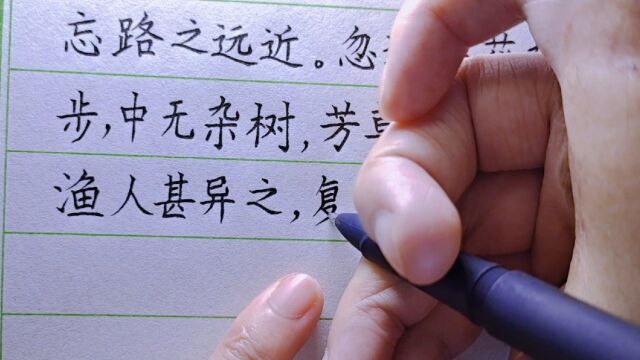 忘路之远近。忽
步,中无杂树,芳
渔人甚异之,复